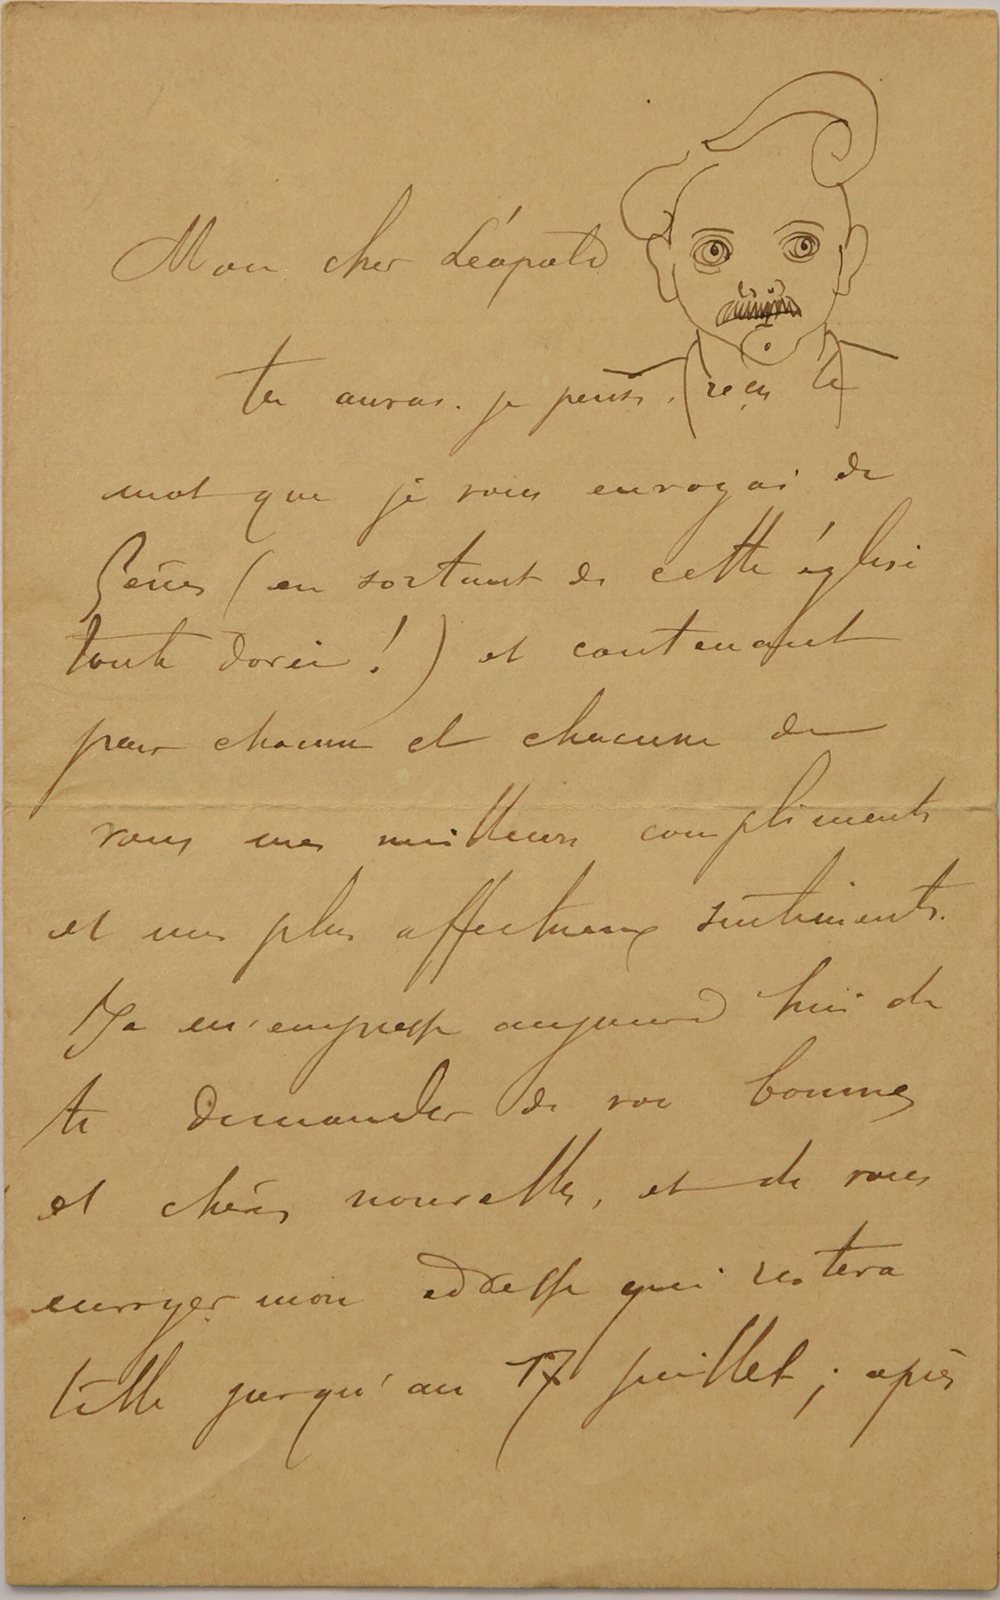 Mon cher Léopold
tu auras, je pense, reçu le
mot que je vous envoyai de
Gênes (en sortant de cette église
toute dorée !) et contenant
pour chacun et chacune de
vous mes meilleurs compliments
et mes plus affectueux sentiments.
Je m'empresse aujourd'hui de
te demander de vos bonnes
et chères nouvelles, et de vous
envoyer mon adresse qui restera
telle jusqu'au 17 juillet ; après